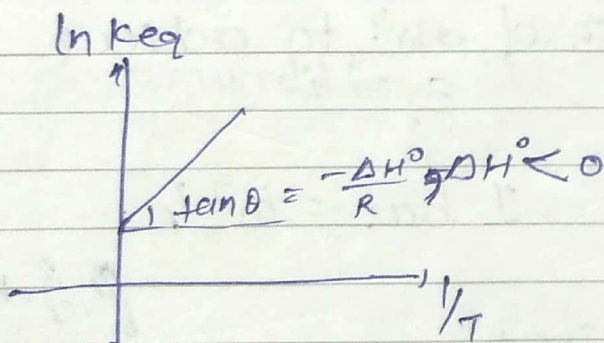 ln Keq
tanθ = -ΔH°/R , ΔH° < 0
1/T